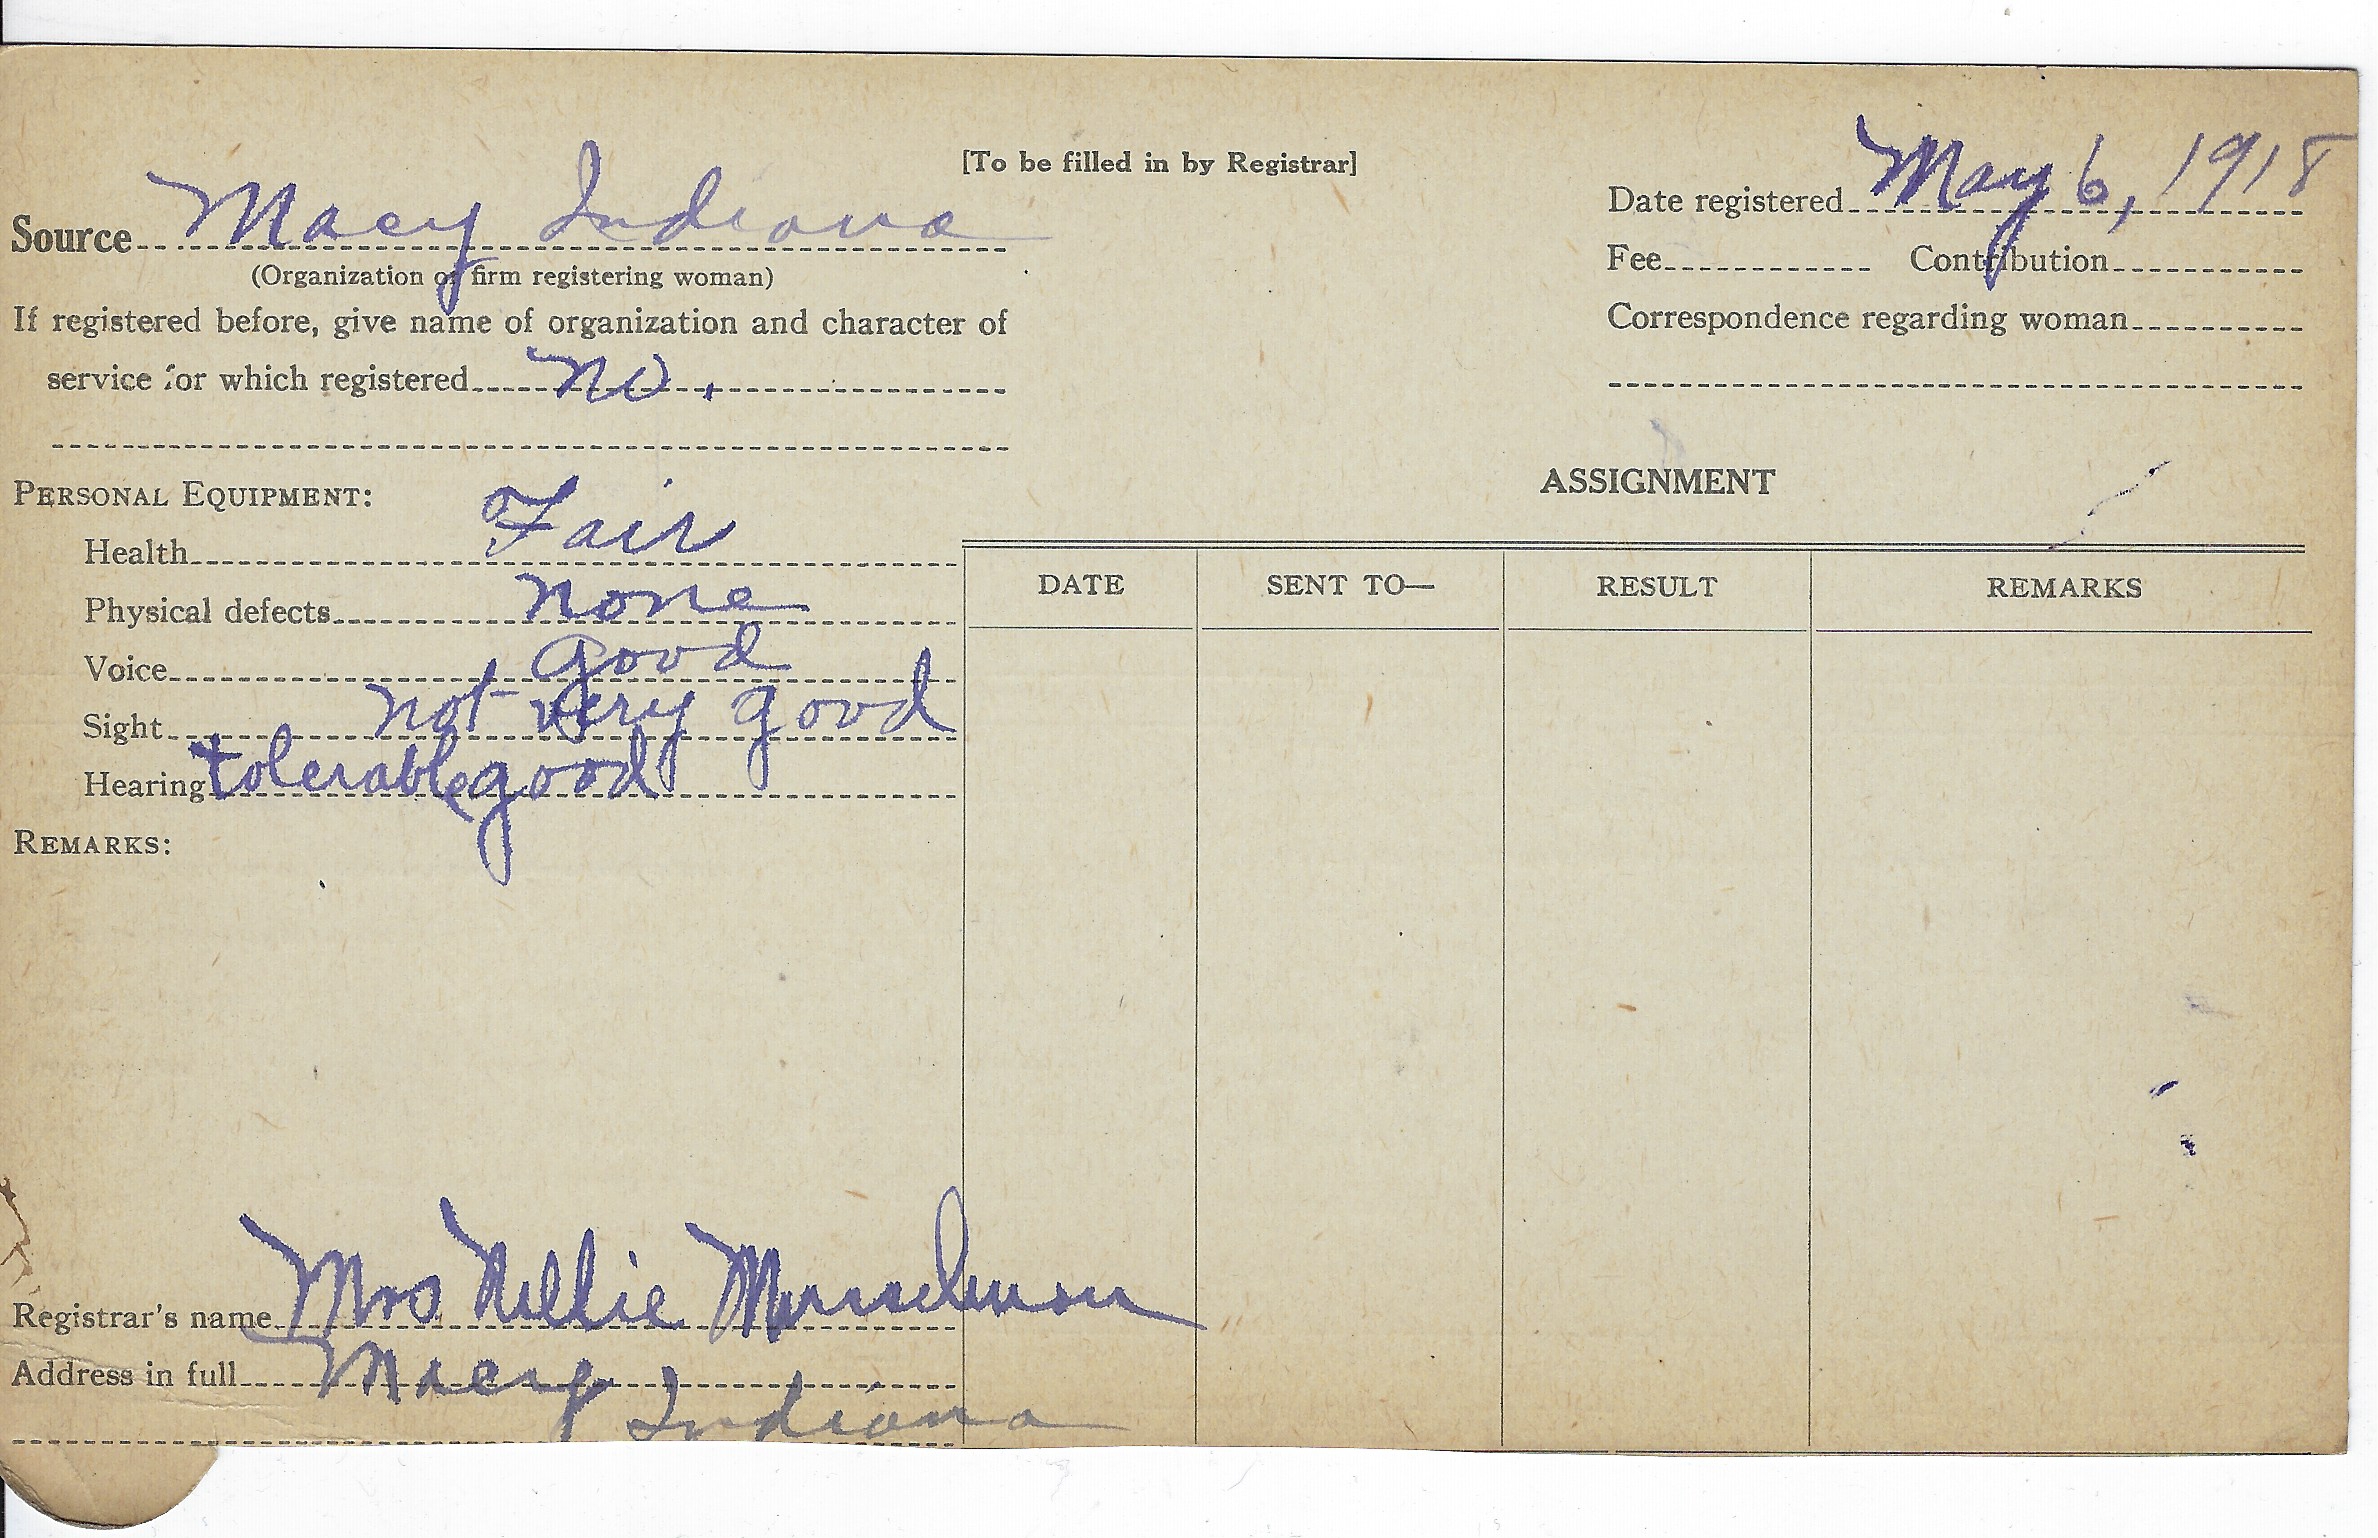 [To be filled in by Registrar]
Source Macy Indiana
(Organization or firm registering woman)
If registered before, give name of organization and character of
service for which registered no.
Date registered May 6, 1918
Fee Contribution
Correspondence regarding woman
PERSONAL EQUIPMENT:
Health Fair
Physical defects none
Voice Good
Sight not very good
Hearing tolerable good
REMARKS:
ASSIGNMENT
DATE SENT TO— RESULT REMARKS
Registrar's name Mrs Nellie Musselman
Address in full Macy
Indiana